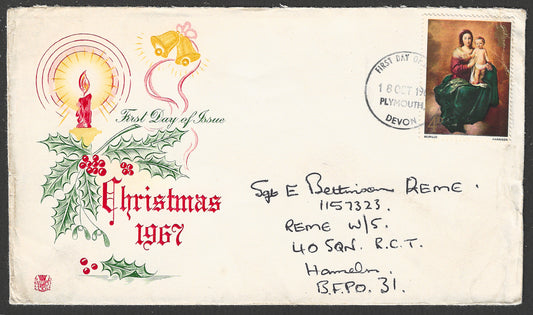 First Day of Issue
Christmas
1967
FIRST DAY OF
18 OCT 196
PLYMOUTH
DEVON
MURILLO
HARRISON
Sgt E Bettinson REME.
1157323.
REME W/S.
40 SQN. R.C.T.
Hameln.
B.F.P.O. 31.